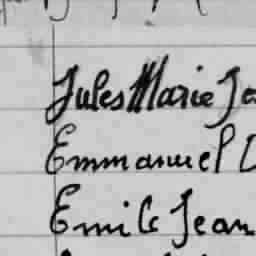 Jules Marie
Emmanuel
Emile Jean